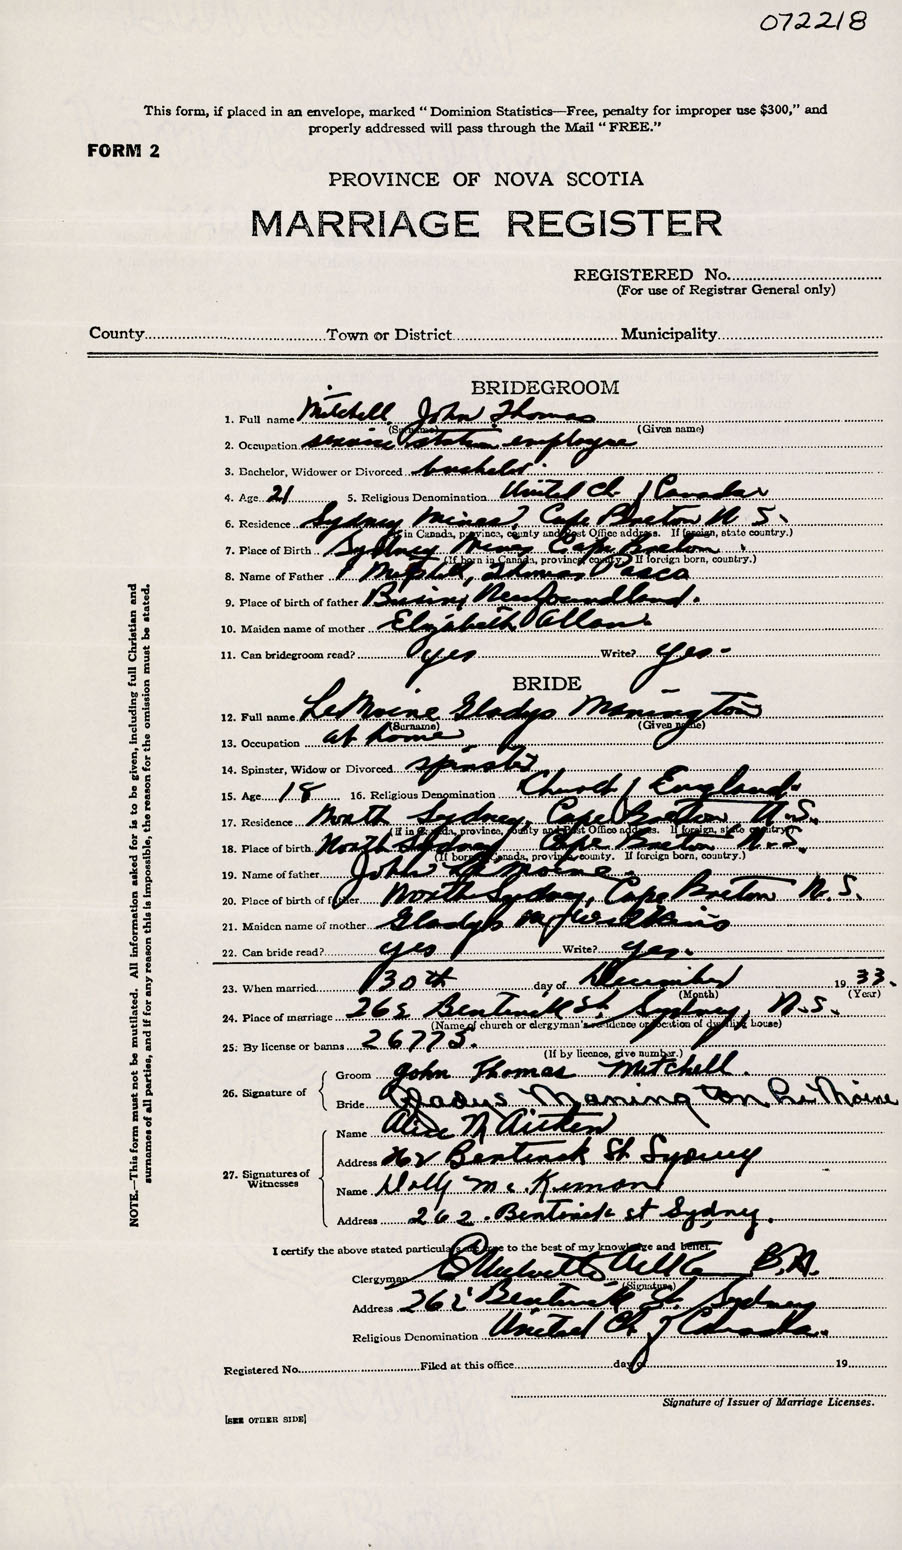 072218
This form, if placed in an envelope, marked "Dominion Statistics—Free, penalty for improper use $300," and
properly addressed will pass through the Mail "FREE."
FORM 2
PROVINCE OF NOVA SCOTIA
MARRIAGE REGISTER
REGISTERED No.
(For use of Registrar General only)
County Town or District Municipality
BRIDEGROOM
1. Full name Mitchell John Thomas
(Surname) (Given name)
2. Occupation service station employee
3. Bachelor, Widower or Divorced bachelor
4. Age 21 5. Religious Denomination United Ch of Canada
6. Residence Sydney Mines, Cape Breton N.S.
(If in Canada, province, county and Post Office address. If foreign, state country.)
7. Place of Birth Sydney Mines Cape Breton
(If born in Canada, province, county. If foreign born, country.)
8. Name of Father Mitchell, Thomas
9. Place of birth of father Newfoundland.
10. Maiden name of mother Elizabeth Allan
11. Can bridegroom read? yes Write? yes
BRIDE
12. Full name LeMoine Gladys Manington
(Surname) (Given name)
13. Occupation at home
14. Spinster, Widow or Divorced spinster
15. Age 18 16. Religious Denomination Church of England
17. Residence North Sydney, Cape Breton N.S.
(If in Canada, province, county and Post Office address. If foreign, state country.)
18. Place of birth North Sydney Cape Breton N.S.
(If born in Canada, province, county. If foreign born, country.)
19. Name of father John LeMoine
20. Place of birth of father North Sydney, Cape Breton N.S.
21. Maiden name of mother Gladys
22. Can bride read? yes Write? yes.
23. When married 30th day of December 1933.
(Month) (Year)
24. Place of marriage 262 Bentinck St. Sydney, N.S.
(Name of church or clergyman's residence or location of dwelling house)
25. By license or banns 26775.
(If by licence, give number.)
26. Signature of
Groom John Thomas Mitchell.
Bride Gladys Manington Le Moine
27. Signatures of Witnesses
Name Alice N Aitken
Address 262 Bentinck St Sydney
Name Dolly McKinnon
Address 262. Bentinck st Sydney.
I certify the above stated particulars are true to the best of my knowledge and belief.
Clergyman B.A.
(Signature)
Address 262 Bentinck St. Sydney
Religious Denomination United Ch of Canada.
Registered No. Filed at this office day of 19
Signature of Issuer of Marriage Licenses.
[SEE OTHER SIDE]
NOTE.—This form must not be mutilated. All information asked for is to be given, including full Christian and
surnames of all parties, and if for any reason this is impossible, the reason for the omission must be stated.